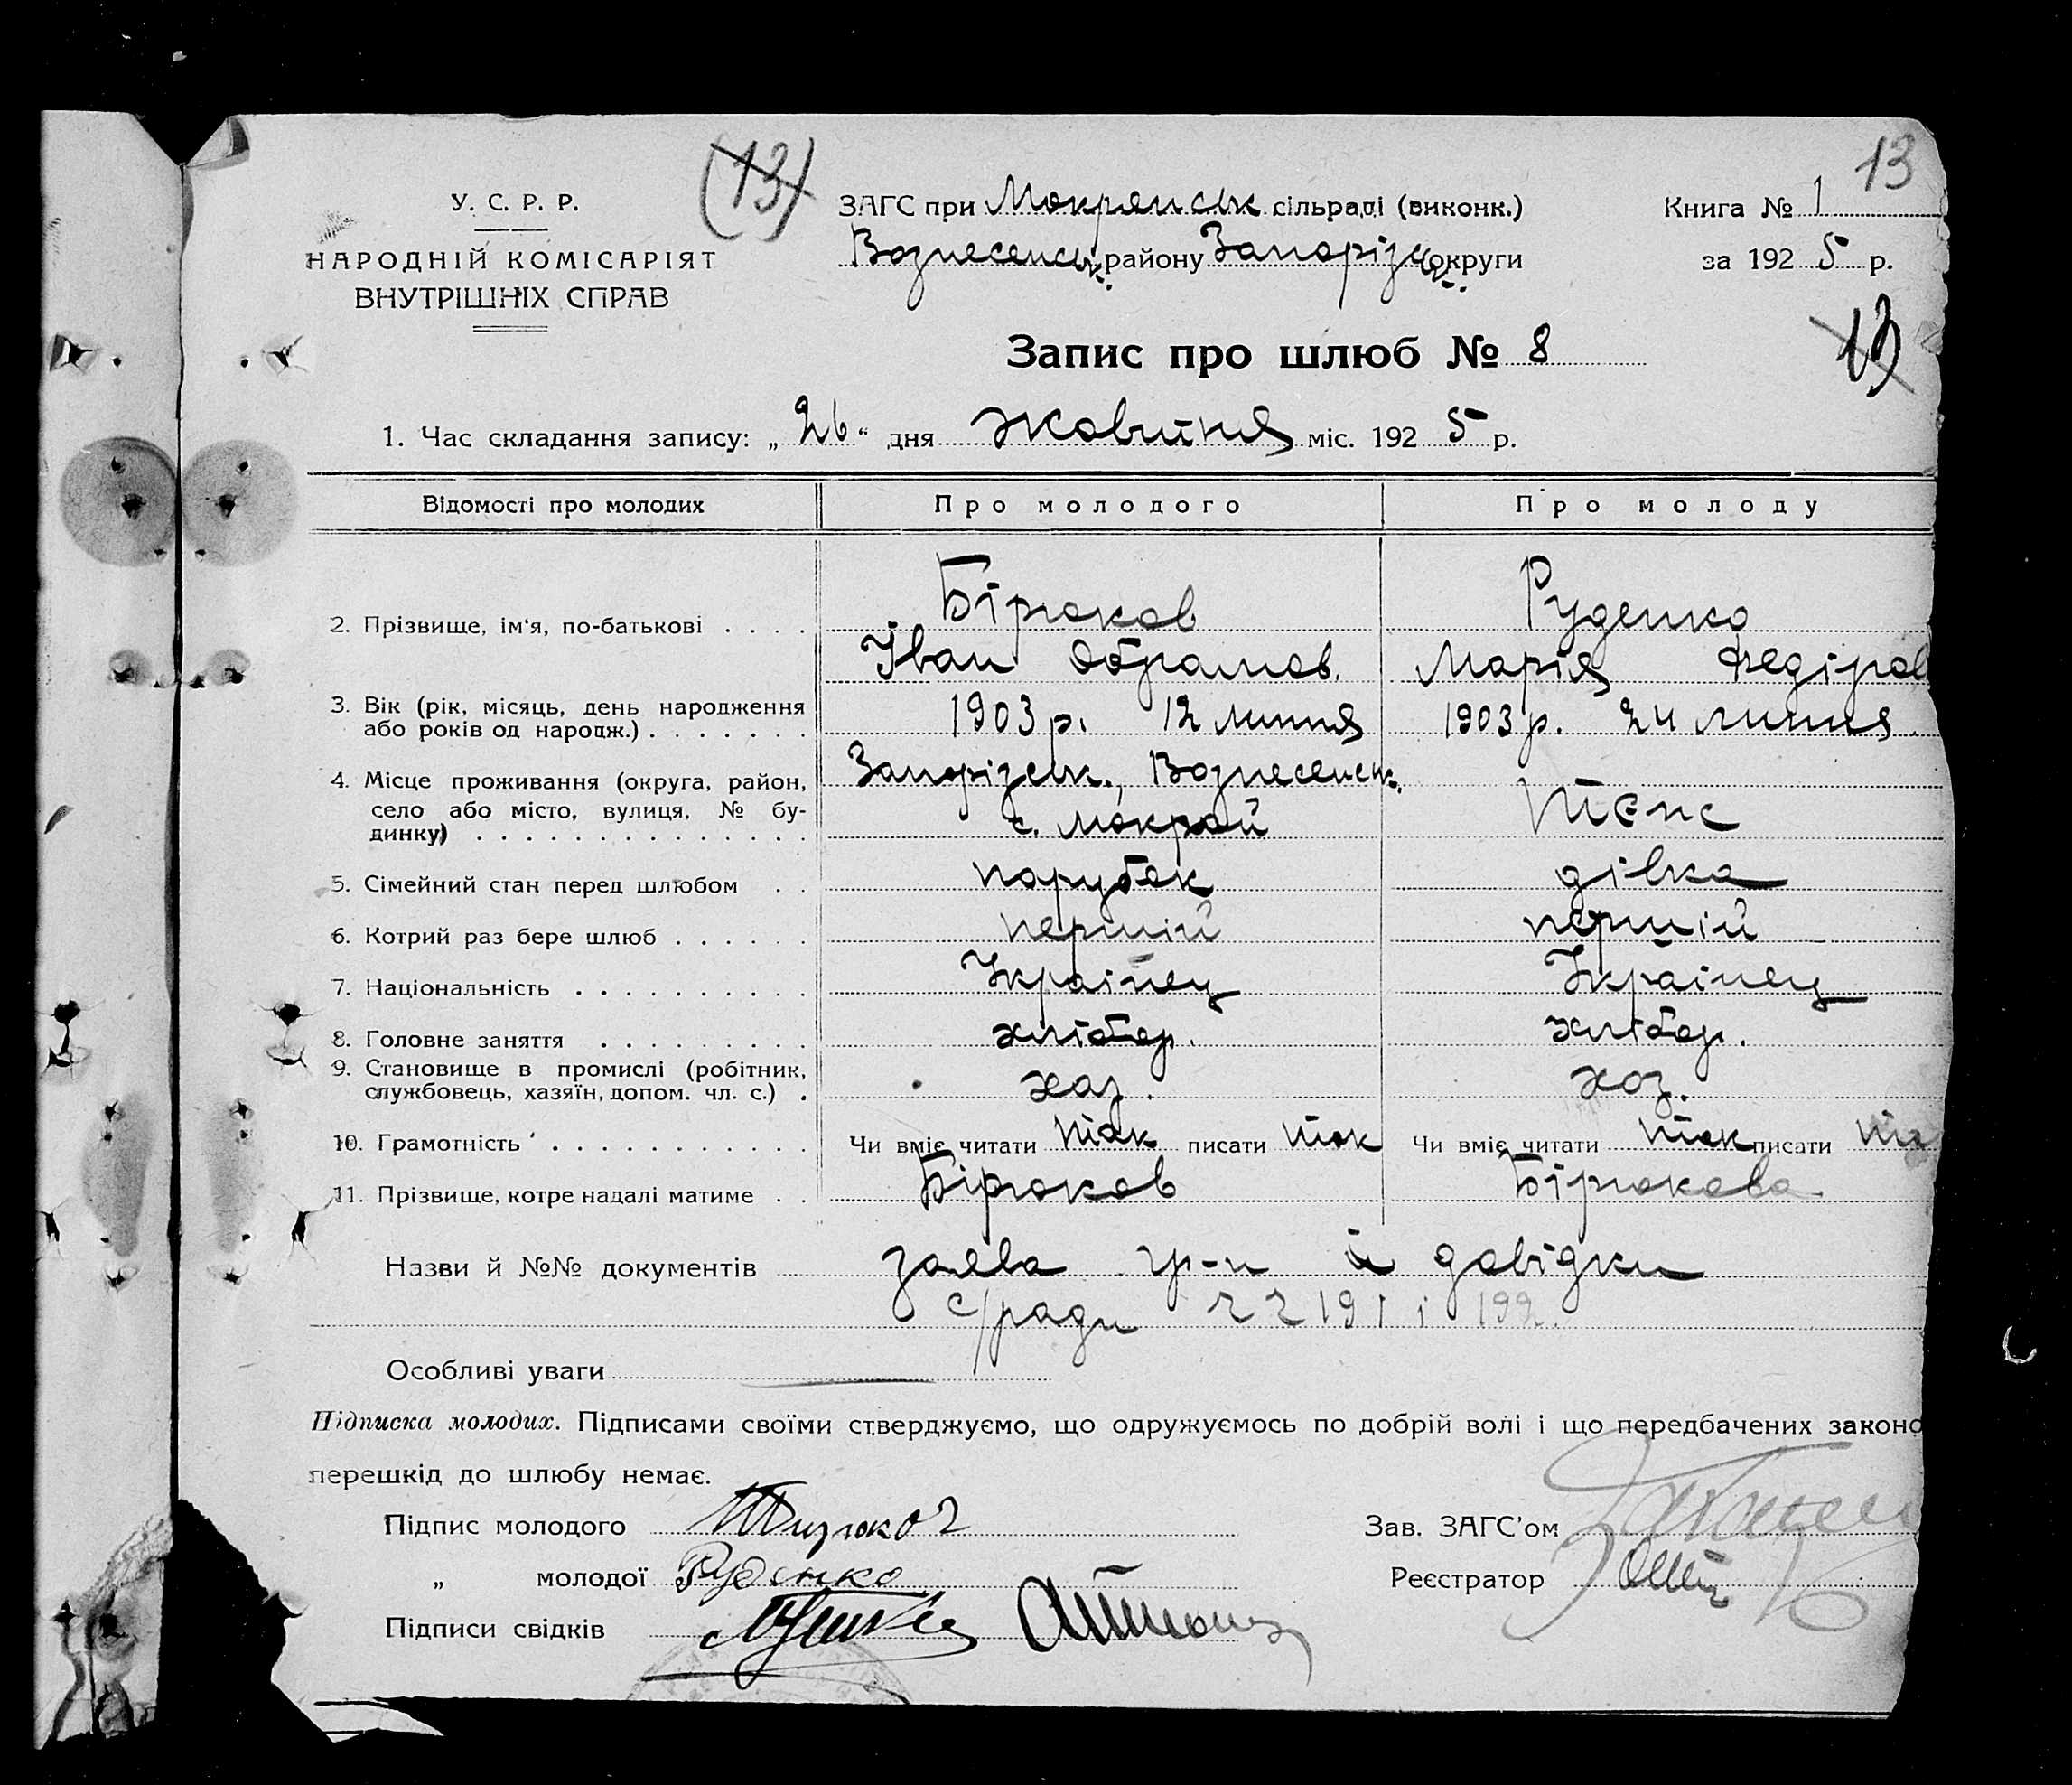 (13)
13
У. С. Р. Р.
НАРОДНІЙ КОМІСАРІЯТ
ВНУТРІШНІХ СПРАВ
ЗАГС при Мокрянськ сільраді (виконк.)
Вознесенськ. району Запорізьк. округи
Книга № 1
за 1925 р.
13
Запис про шлюб № 8
1. Час складання запису: „26“ дня жовтня міс. 1925 р.
Відомості про молодих Про молодого Про молоду
2. Прізвище, ім‘я, по-батькові . . . . Бірюков Руденко
Іван Обрамов. Марія Федіров
3. Вік (рік, місяць, день народження або років од народж.) . . . . . . . 1903 р. 12 липня 1903 р. 24 липня
4. Місце проживання (округа, район, село або місто, вулиця, № будинку) . . . . . . . . . . . . . Запорізськ., Вознесенськ. с. Мокрой Тєпс
5. Сімейний стан перед шлюбом . . парубок дівка
6. Котрий раз бере шлюб . . . . . . перший перший
7. Національність . . . . . . . . . . Українец Українец
8. Головне заняття . . . . . . . . . хлібор. хлібор.
9. Становище в промислі (робітник, службовець, хазяїн, допом. чл. с.) . хаз. хоз.
10. Грамотність . . . . . . . . . . . Чи вміє читати так писати так Чи вміє читати так писати та
11. Прізвище, котре надалі матиме . . Бірюков Бірюкова
Назви й №№ документів заява гр-н й довідки
с/ради
Особливі уваги
Підписка молодих. Підписами своїми стверджуємо, що одружуємось по добрій волі і що передбачених законо
перешкід до шлюбу немає.
Підпис молодого Зав. ЗАГС’ом
„ молодої Руденко Реєстратор
Підписи свідків